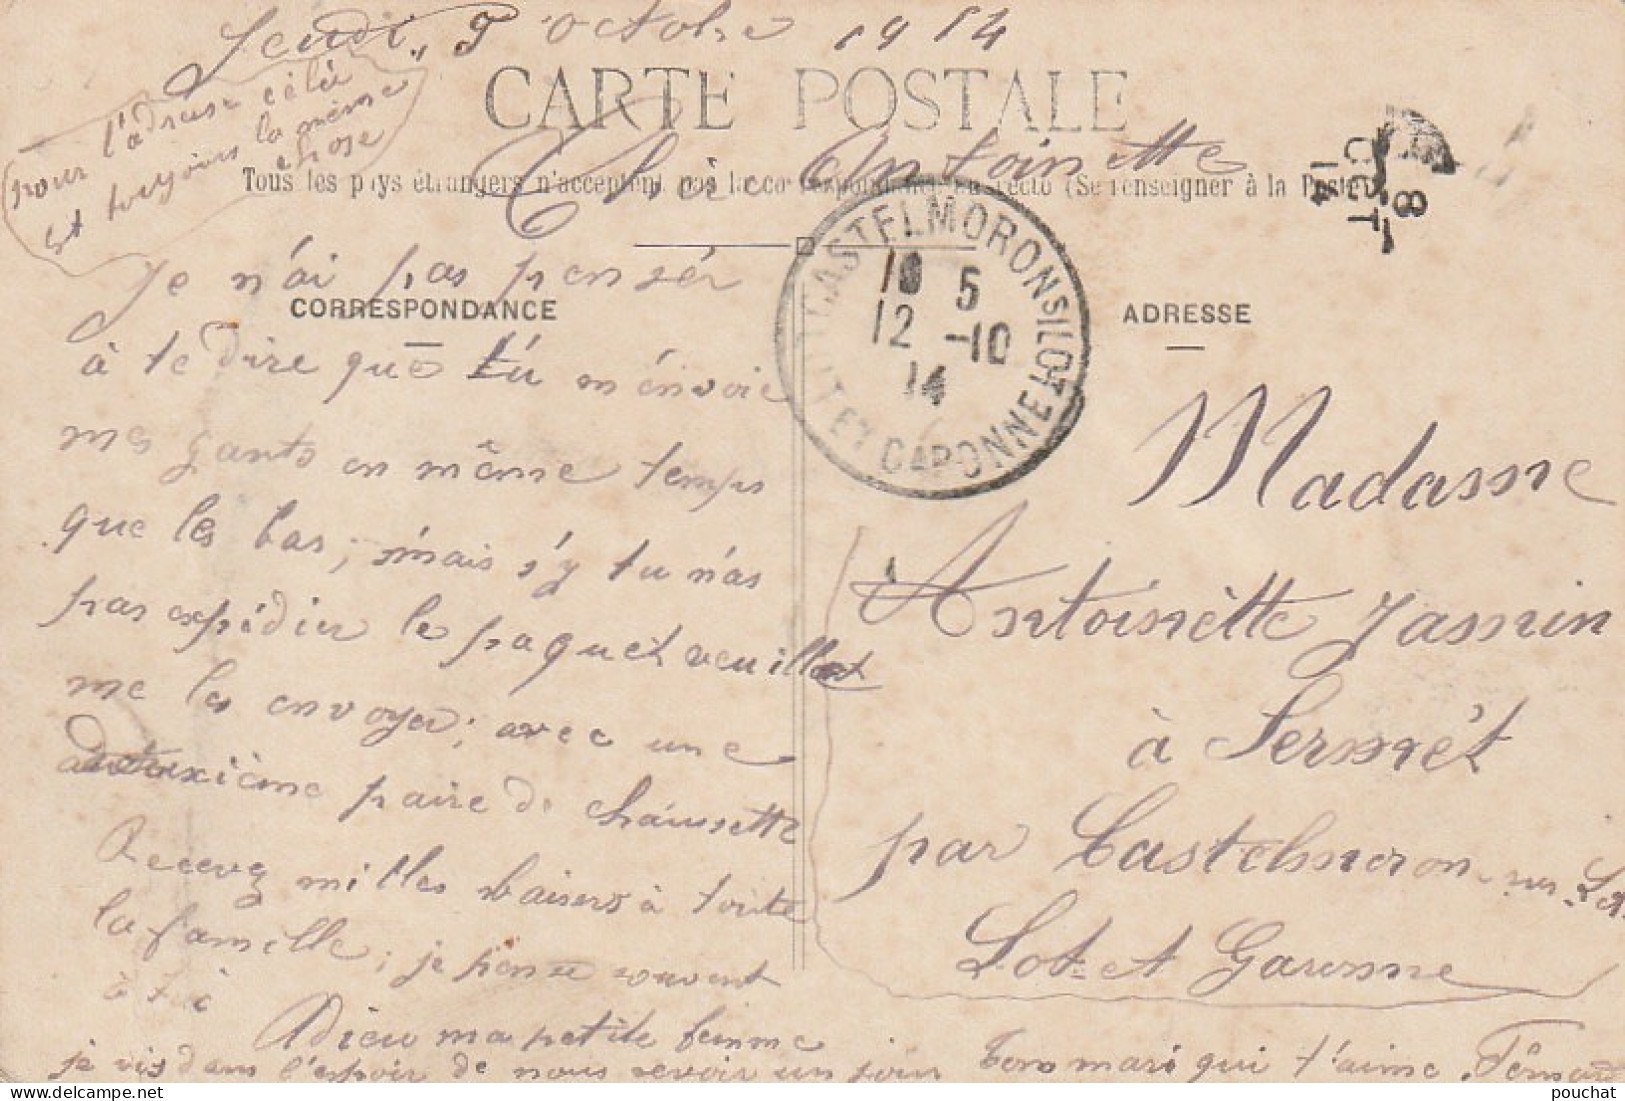 Jeudi, 8 octobre 1914
pour l'adresse cela
est toujours la même
chose
CARTE POSTALE
Chère Antoinette
Tous les pays étrangers n'acceptent pas la correspondance au recto (Se renseigner à la Poste)
CORRESPONDANCE
ADRESSE
je n'ai pas pensér
à te dire que tu m'envoie
mes gants en même temps
que les bas; mais s'y tu n'as
pas expédier le paquet veuillet
me les envoyer; avec une
deuxième paire de chaussette
Recevez milles baisers à toute
la famille; je pense souvent
à toi
Adieu ma petite femme
je vis dans l'espoir de nous revoir un jour
Ton mari qui t'aime Fernand
CASTELMORON SUR LOT
LOT ET GARONNE
10 5
12 -10
14
8
OCT
14
Madame
Antoinètte Jasmin
à Sermèt
par Castelmoron-sur-Lot
Lot-et Garonne
pouchat